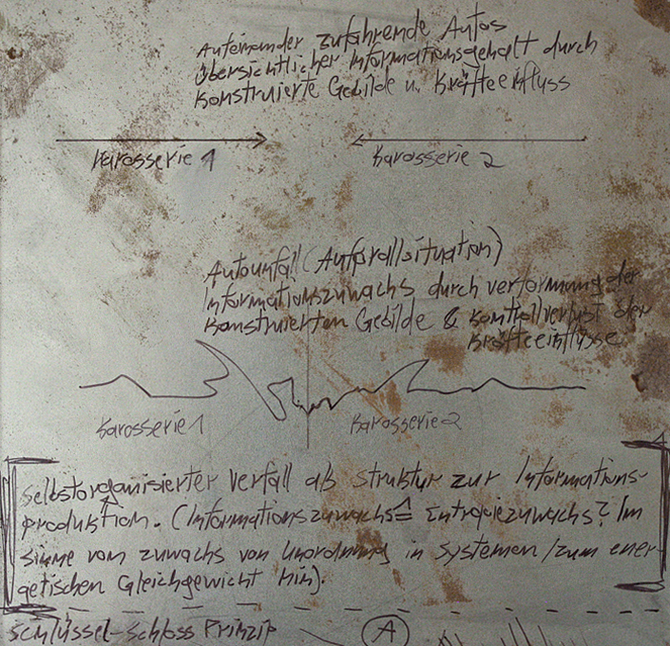 Aufeinander zufahrende Autos
Übersichtlicher Informationsgehalt durch
Konstruierte Gebilde u. Kräfteeinfluss
Karosserie 1
Karosserie 2
Autounfall (Aufprallsituation)
Informationszuwachs durch verformung der
Konstruierten Gebilde & Kontrollverlust der
Kräfteeinflüsse
Karosserie 1
Karosserie 2
Selbstorganisierter Verfall als Struktur zur Informations-
produktion. (Informationszuwachs ≙ Entropiezuwachs? Im
sinne von zuwachs von Unordnung in Systemen /zum ener-
getischen Gleichgewicht hin).
Schlüssel-Schloss Prinzip
A